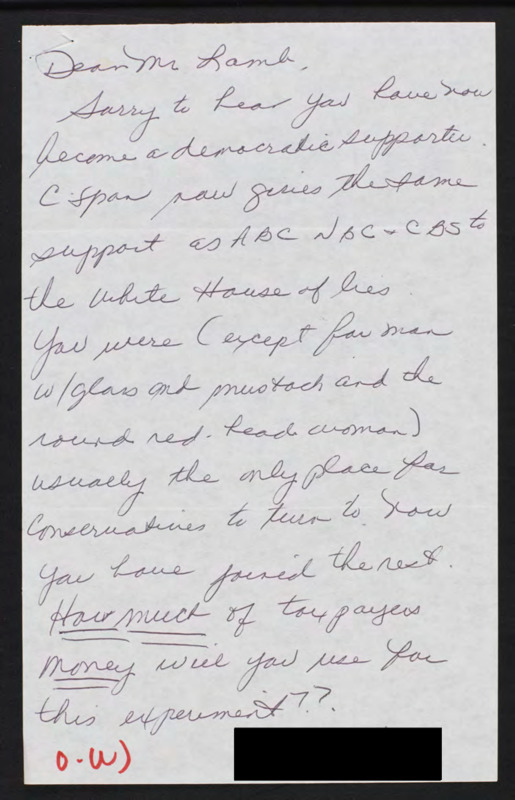 Dear Mr Lamb,
Sorry to hear you have now
become a democratic supporter.
C-Span now gives the same
support as ABC NBC + CBS to
the White House of lies.
You were (except for man
w/glass and mustach and the
round red-head woman)
usually the only place for
Conservatives to turn to. Now
you have joined the rest.
How much of taxpayers
money will you use for
this experiment??.
O-W)